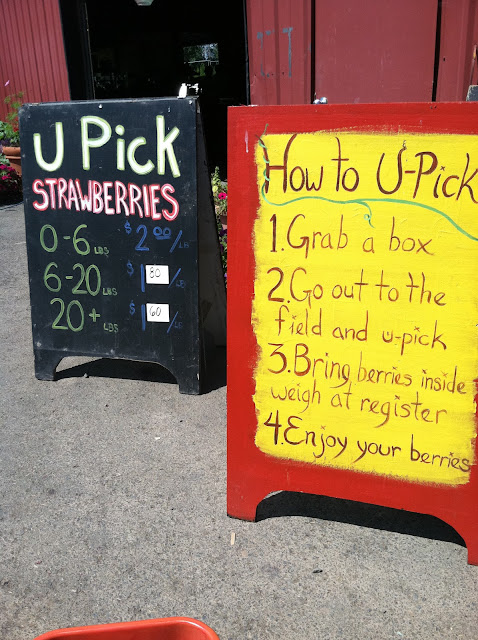 U Pick
STRAWBERRIES
0-6 LBS $2.00/LB
6-20 LBS $1 80/LB
20+ LBS $1 60/LB
How to U-Pick
1. Grab a box
2. Go out to the
field and u-pick
3. Bring berries inside
weigh at register
4. Enjoy your berries